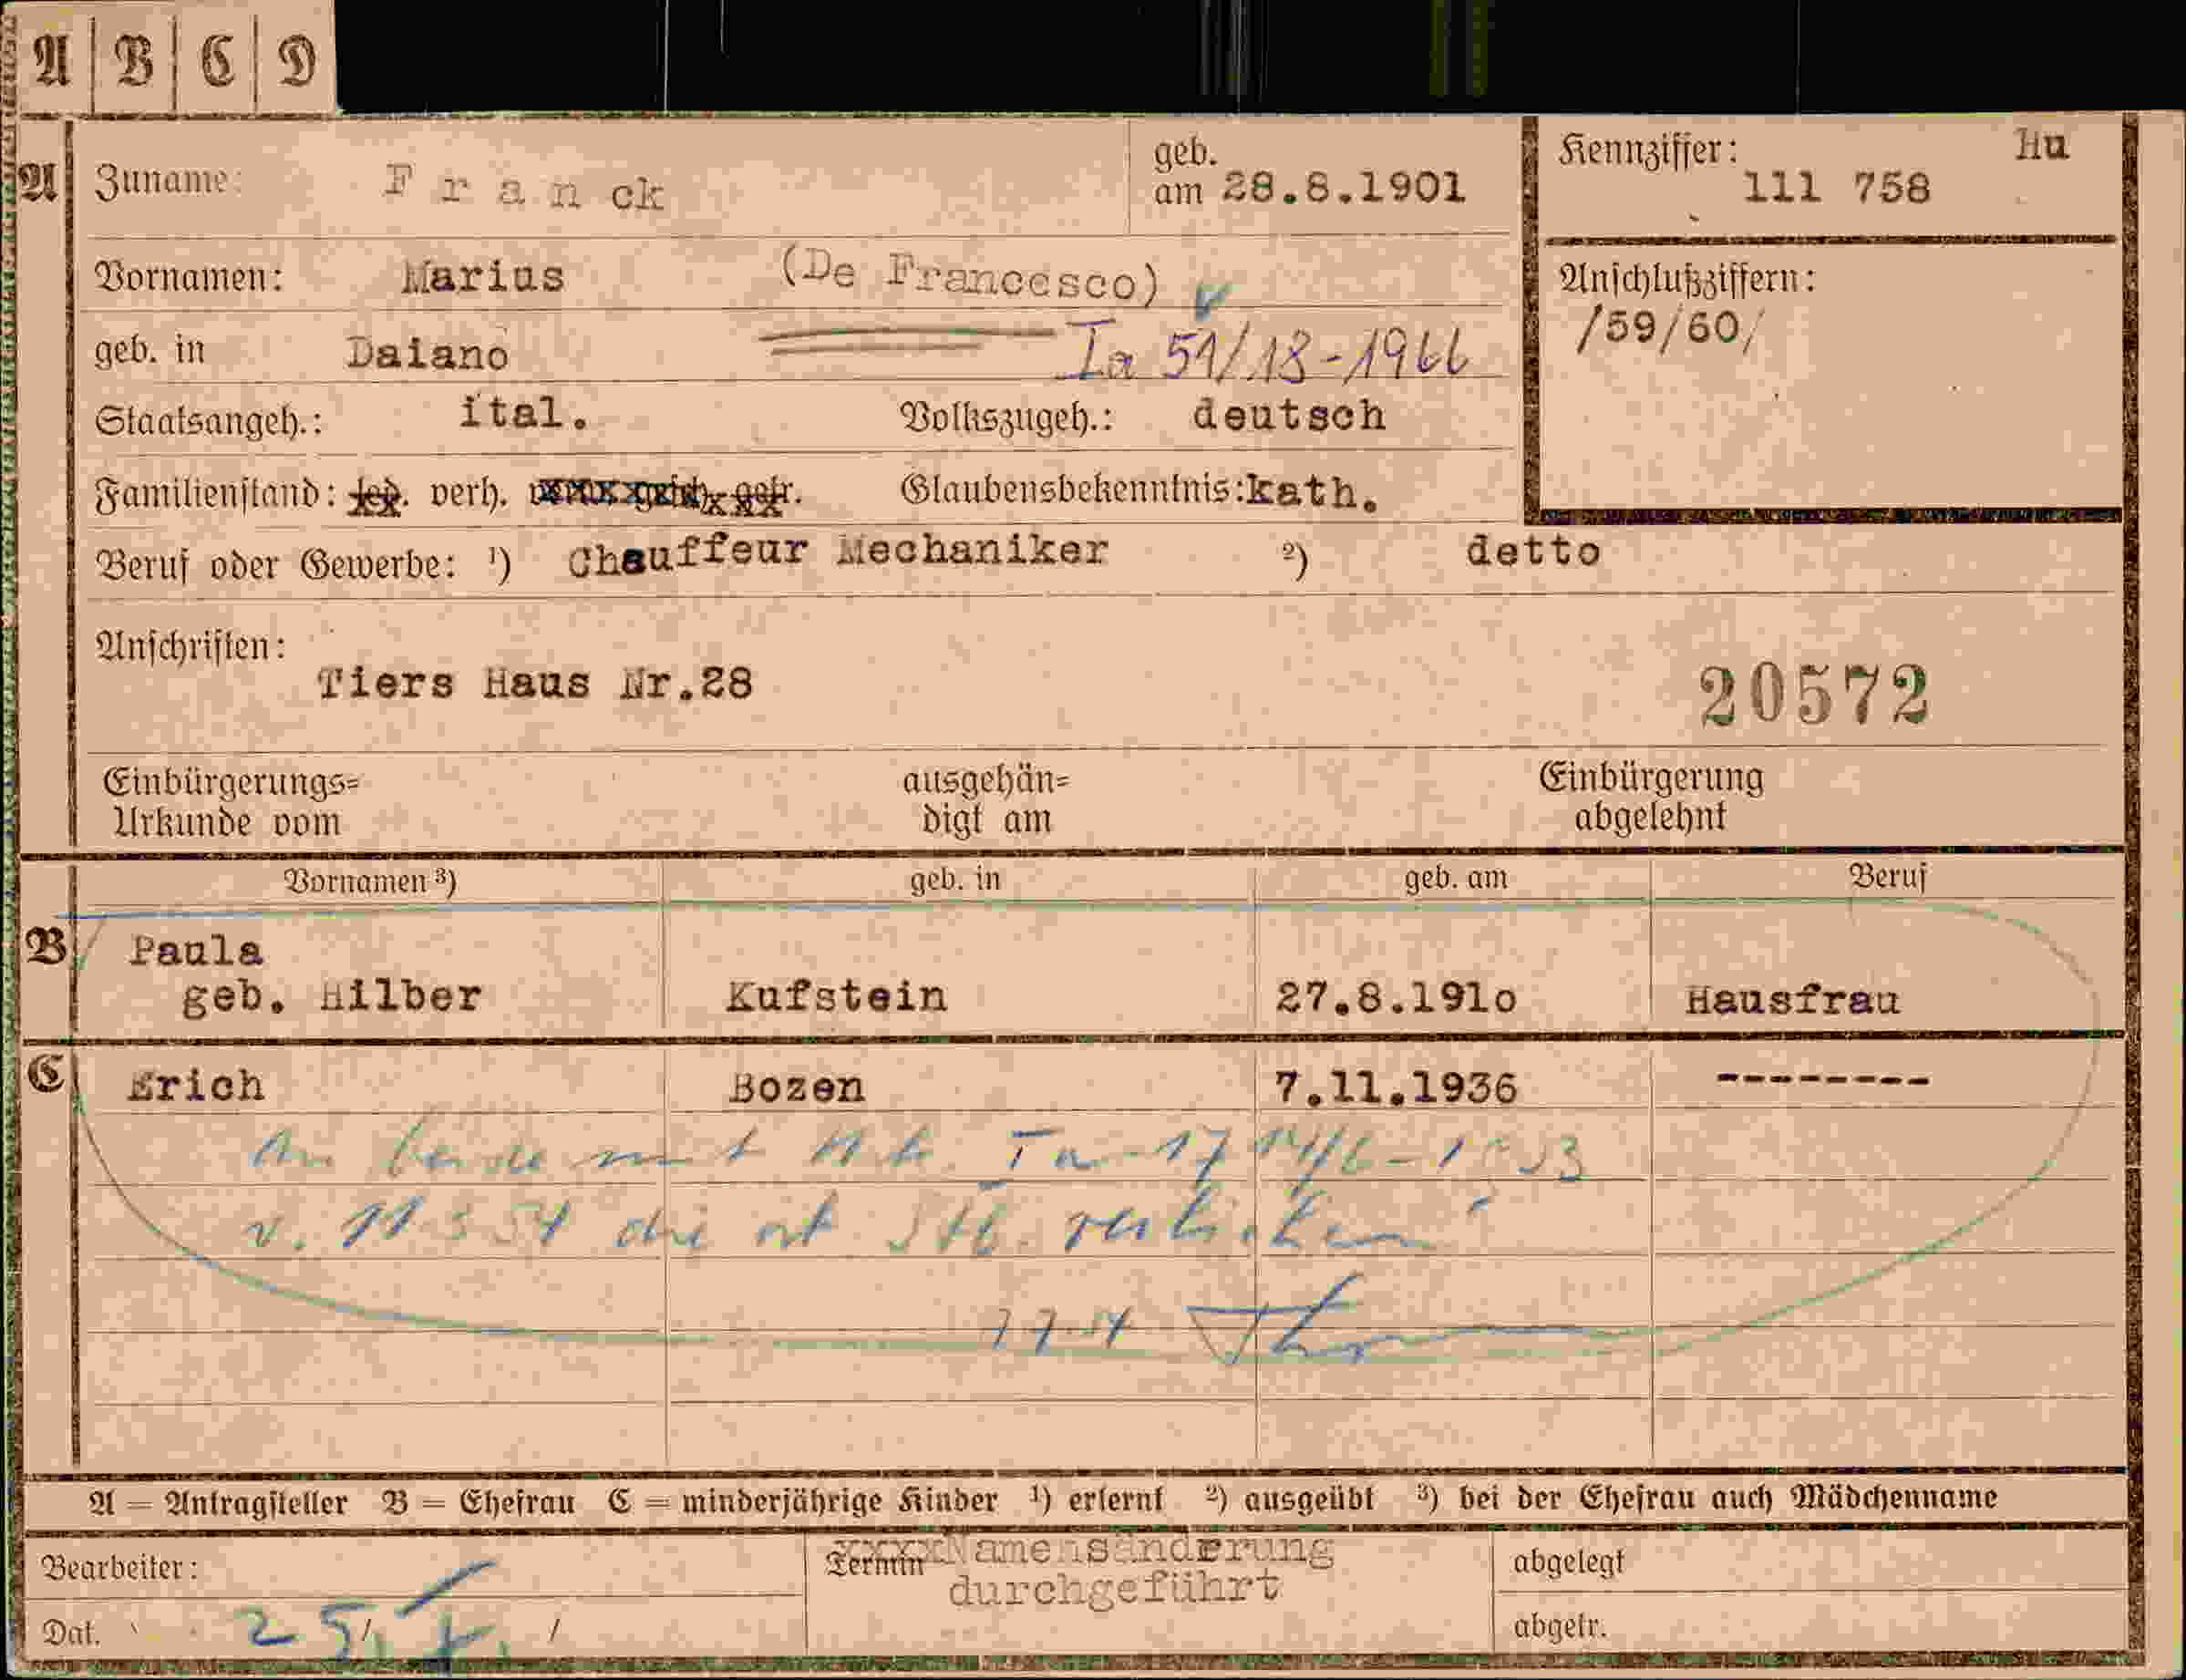 A B C D
A Zuname: Franck geb. am 28.8.1901 Kennziffer: 111 758 Hu
Vornamen: Marius (De Francesco)
Anschlußziffern: /59/60/
geb. in Daiano Ia 51/18-1966
Staatsangeh.: ital. Volkszugeh.: deutsch
Familienstand: led. verh. gesch. getr. Glaubensbekenntnis: kath.
Beruf oder Gewerbe: 1) Chauffeur Mechaniker 2) detto
Anschriften:
Tiers Haus Nr.28 20572
Einbürgerungs= ausgehän= Einbürgerung
Urkunde vom digt am abgelehnt
Vornamen 3) geb. in geb. am Beruf
B Paula
geb. Hilber Kufstein 27.8.191o Hausfrau
C Erich Bozen 7.11.1936 --------
beide mit Ia-17
v. 11 3 54 die Stb.
7 7.54
A = Antragsteller B = Ehefrau C = minderjährige Kinder 1) erlernt 2) ausgeübt 3) bei der Ehefrau auch Mädchenname
Bearbeiter: Termin xxxxNamensänderung abgelegt
durchgeführt
Dat. 25/ / abgetr.